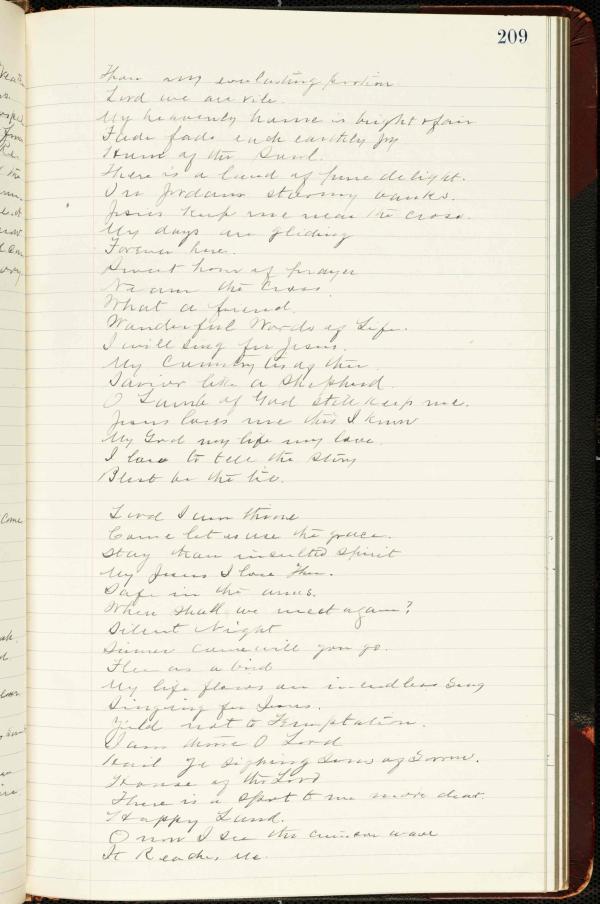 209
Thou my everlasting portion
Lord we are vile.
My heavenly home is bright & fair
Fade fade each earthly joy
Home of the Soul.
There is a land of pure delight.
On Jordans stormy banks.
Jesus keep me near the cross.
My days are gliding
Forever here.
Sweet hour of prayer
Near the Cross
What a friend
Wonderful Words of Life.
I will sing for Jesus.
My Country tis of thee
Savior like a Shepherd
O Lamb of God still keep me.
Jesus loves me this I know
My God my life my love
I love to tell the story
Blest be the tie.
Lord I am thine
Come let us use the grace.
Stay thou insulted Spirit
My Jesus I love Thee.
Safe in the arms.
When shall we meet again?
Silent Night
Sinner come will you go.
Flee as a bird
My life flows on in endless Song
Singing for Jesus.
Yield not to Temptation.
I am thine O Lord
Hail Ye Sighing Sons of Sorrow.
House of the Lord
There is a spot to me more dear.
Happy Land.
O now I see the crimson wave
It Reaches Me.